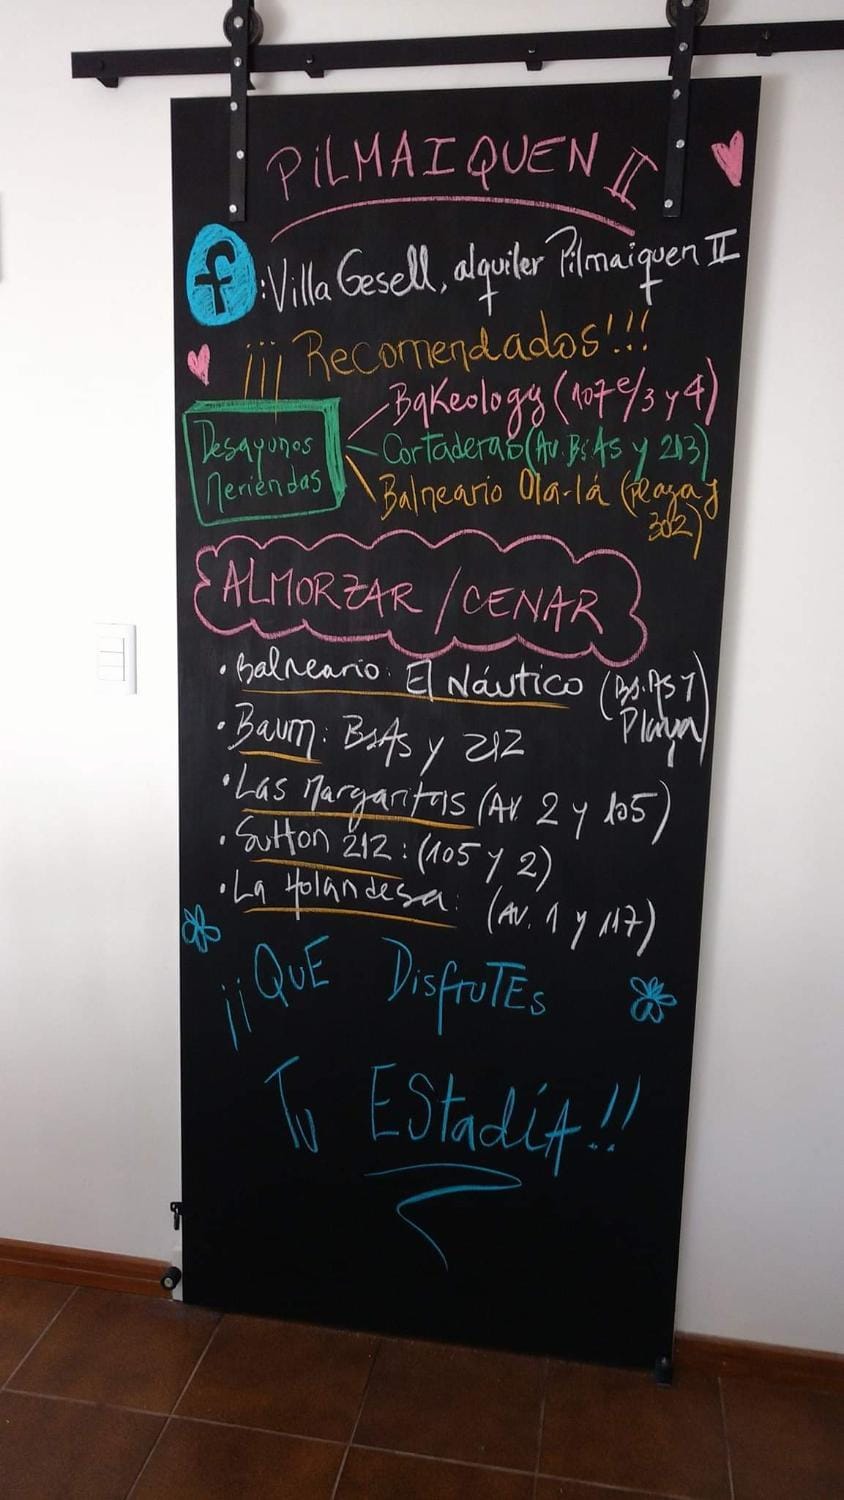 PiLMAIQUEN II
f : Villa Gesell, alquiler Pilmaiquen II
¡¡¡ Recomendados!!!
Desayunos
Meriendas
BaKeology (107 e/3 y 4)
Cortaderas (Av. Bs As y 213)
Balneario Ola-lá (Playa y
302)
ALMORZAR / CENAR
• Balneario: El Náutico (Bs. As y
Playa)
• Baum: BsAs y 212
• Las Margaritas (Av. 2 y 105)
• Sutton 212: (105 y 2)
• La Holandesa: (AV. 1 y 117)
¡¡QUE DisfruTEs
Tu EStadíA!!